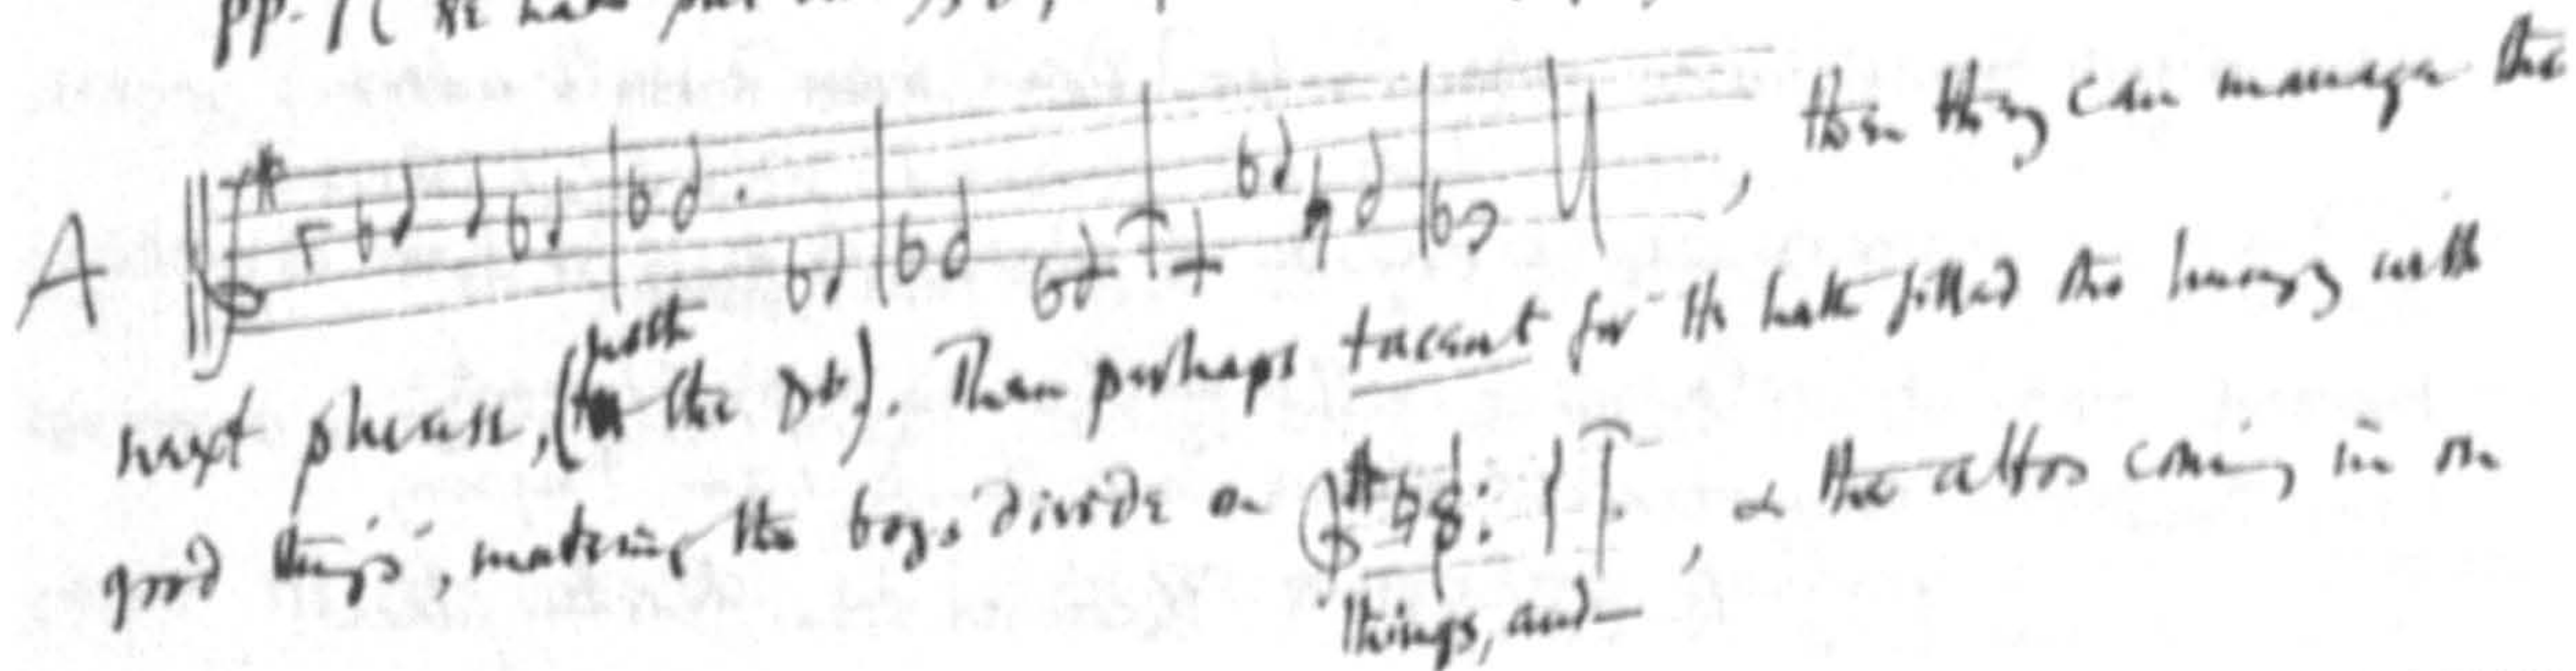 pp. 7 (He hath put
A , then they can manage the
next phrase, (with the Db). Then perhaps tacent for 'He hath filled the hungry with
good things', making the boys divide on , & the altos coming in on
things, and—